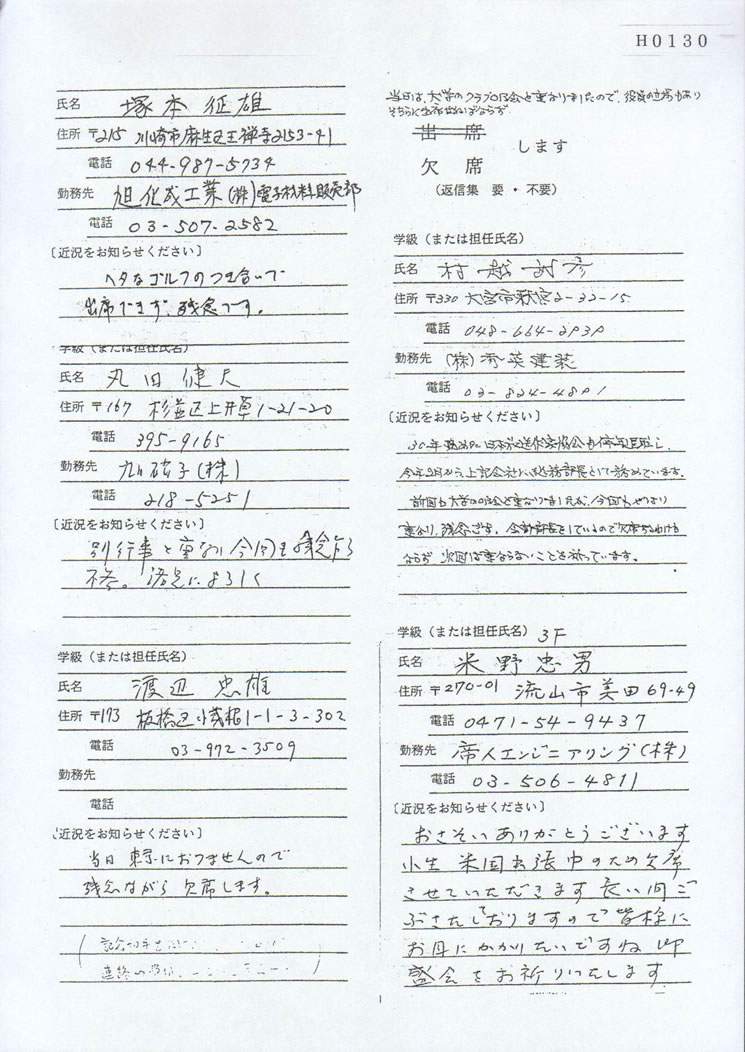 H0130
氏名 塚本 征雄
住所 〒215 川崎市麻生区王禅寺2153-41
電話 044-987-5734
勤務先 旭化成工業(株)電子材料販売部
電話 03-507-2582
〔近況をお知らせください〕
ヘタなゴルフのつき合いで
出席できず、残念です。
学級(または担任氏名)
氏名 丸田 健夫
住所 〒167 杉並区上井草1-21-20
電話 395-9165
勤務先 (株)
電話 218-5251
〔近況をお知らせください〕
別行事と重なり今回も残念乍ら
不参。諸兄によろしく
学級(または担任氏名)
氏名 渡辺 忠雄
住所 〒173 板橋区小茂根1-1-3-302
電話 03-972-3509
勤務先
電話
〔近況をお知らせください〕
当日 東京におりませんので
残念ながら 欠席します。
当日は、大学のクラブOB会と重なりましたので、役員の立場もあり
そちらに出席せねばならず
出 席
します
欠 席
(返信集 要・不要)
学級(または担任氏名)
氏名 村越
住所 〒330 大宮市 2-32-15
電話 048-664-2939
勤務先 (株)
電話 03-824-4801
〔近況をお知らせください〕
30年 日本放送作家協会
今年2月から上記会社に総務部長として務めています。
前回も大学OB会と重なりましたが、今回もやはり
重なり、残念です。 しているので欠席
ならず 次回は重ならないことを祈っています。
学級(または担任氏名) 3F
氏名 米野忠男
住所 〒270-01 流山市美田69-49
電話 0471-54-9437
勤務先 帝人エンジニアリング(株)
電話 03-506-4811
〔近況をお知らせください〕
おさそいありがとうございます
小生 米国出張中のため欠席
させていただきます 長い間ご
ぶさたしておりますので皆様に
お目にかかりたいですね 御
盛会をお祈りいたします